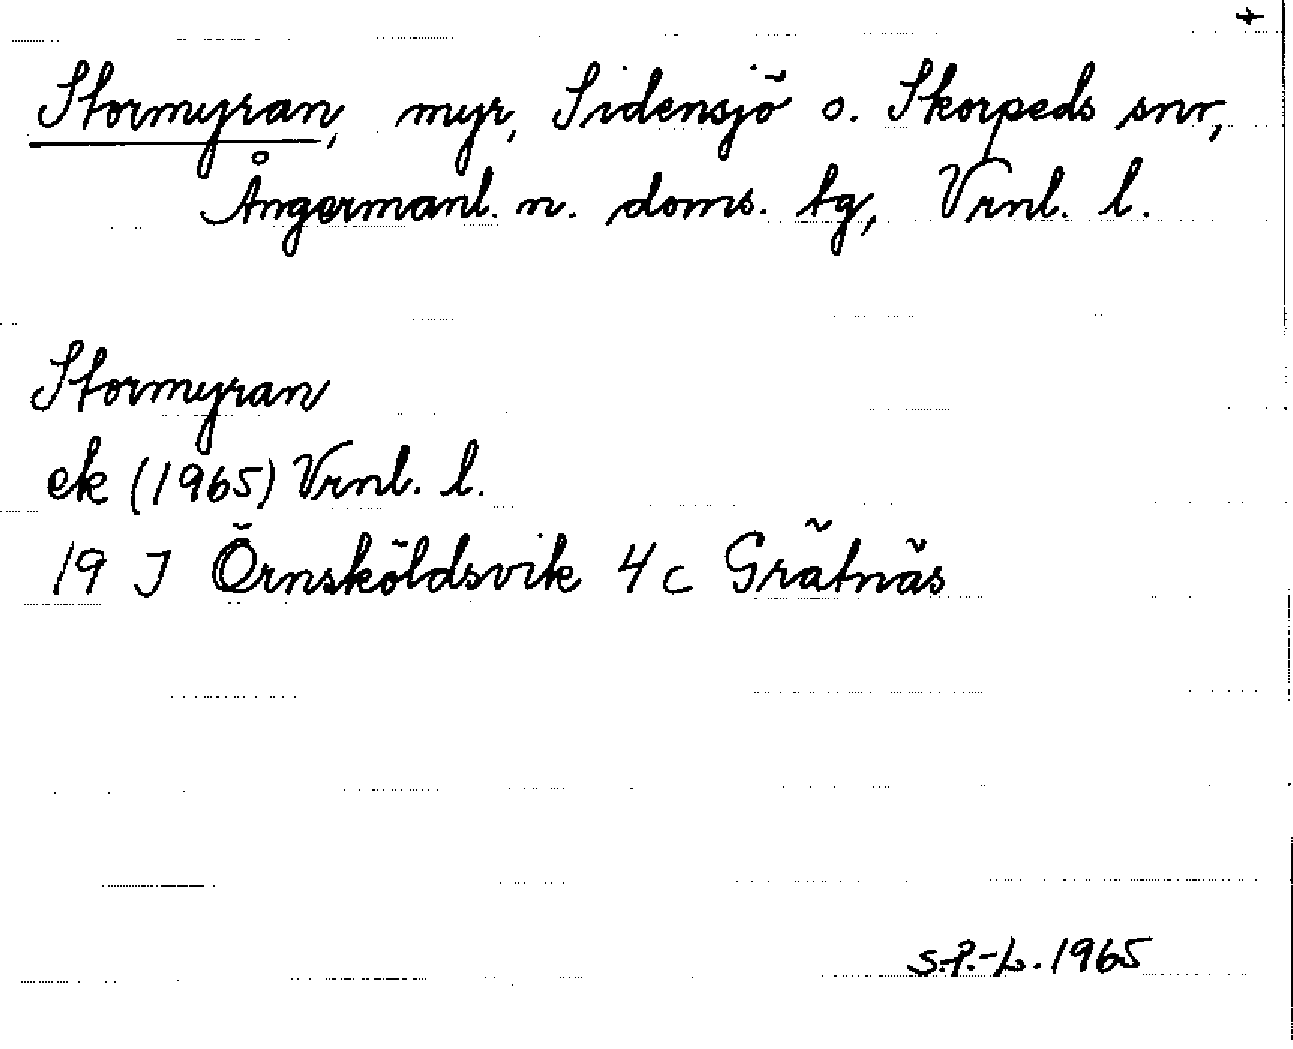 +
Stormyran, myr, Sidensjö o. Skorpeds snr,
Ångermanl. n. doms. tg, Vrnl. l.
Stormyran
ek (1965) Vrnl. l.
19 J Örnsköldsvik 4 c Grätnäs
S.P.-L. 1965